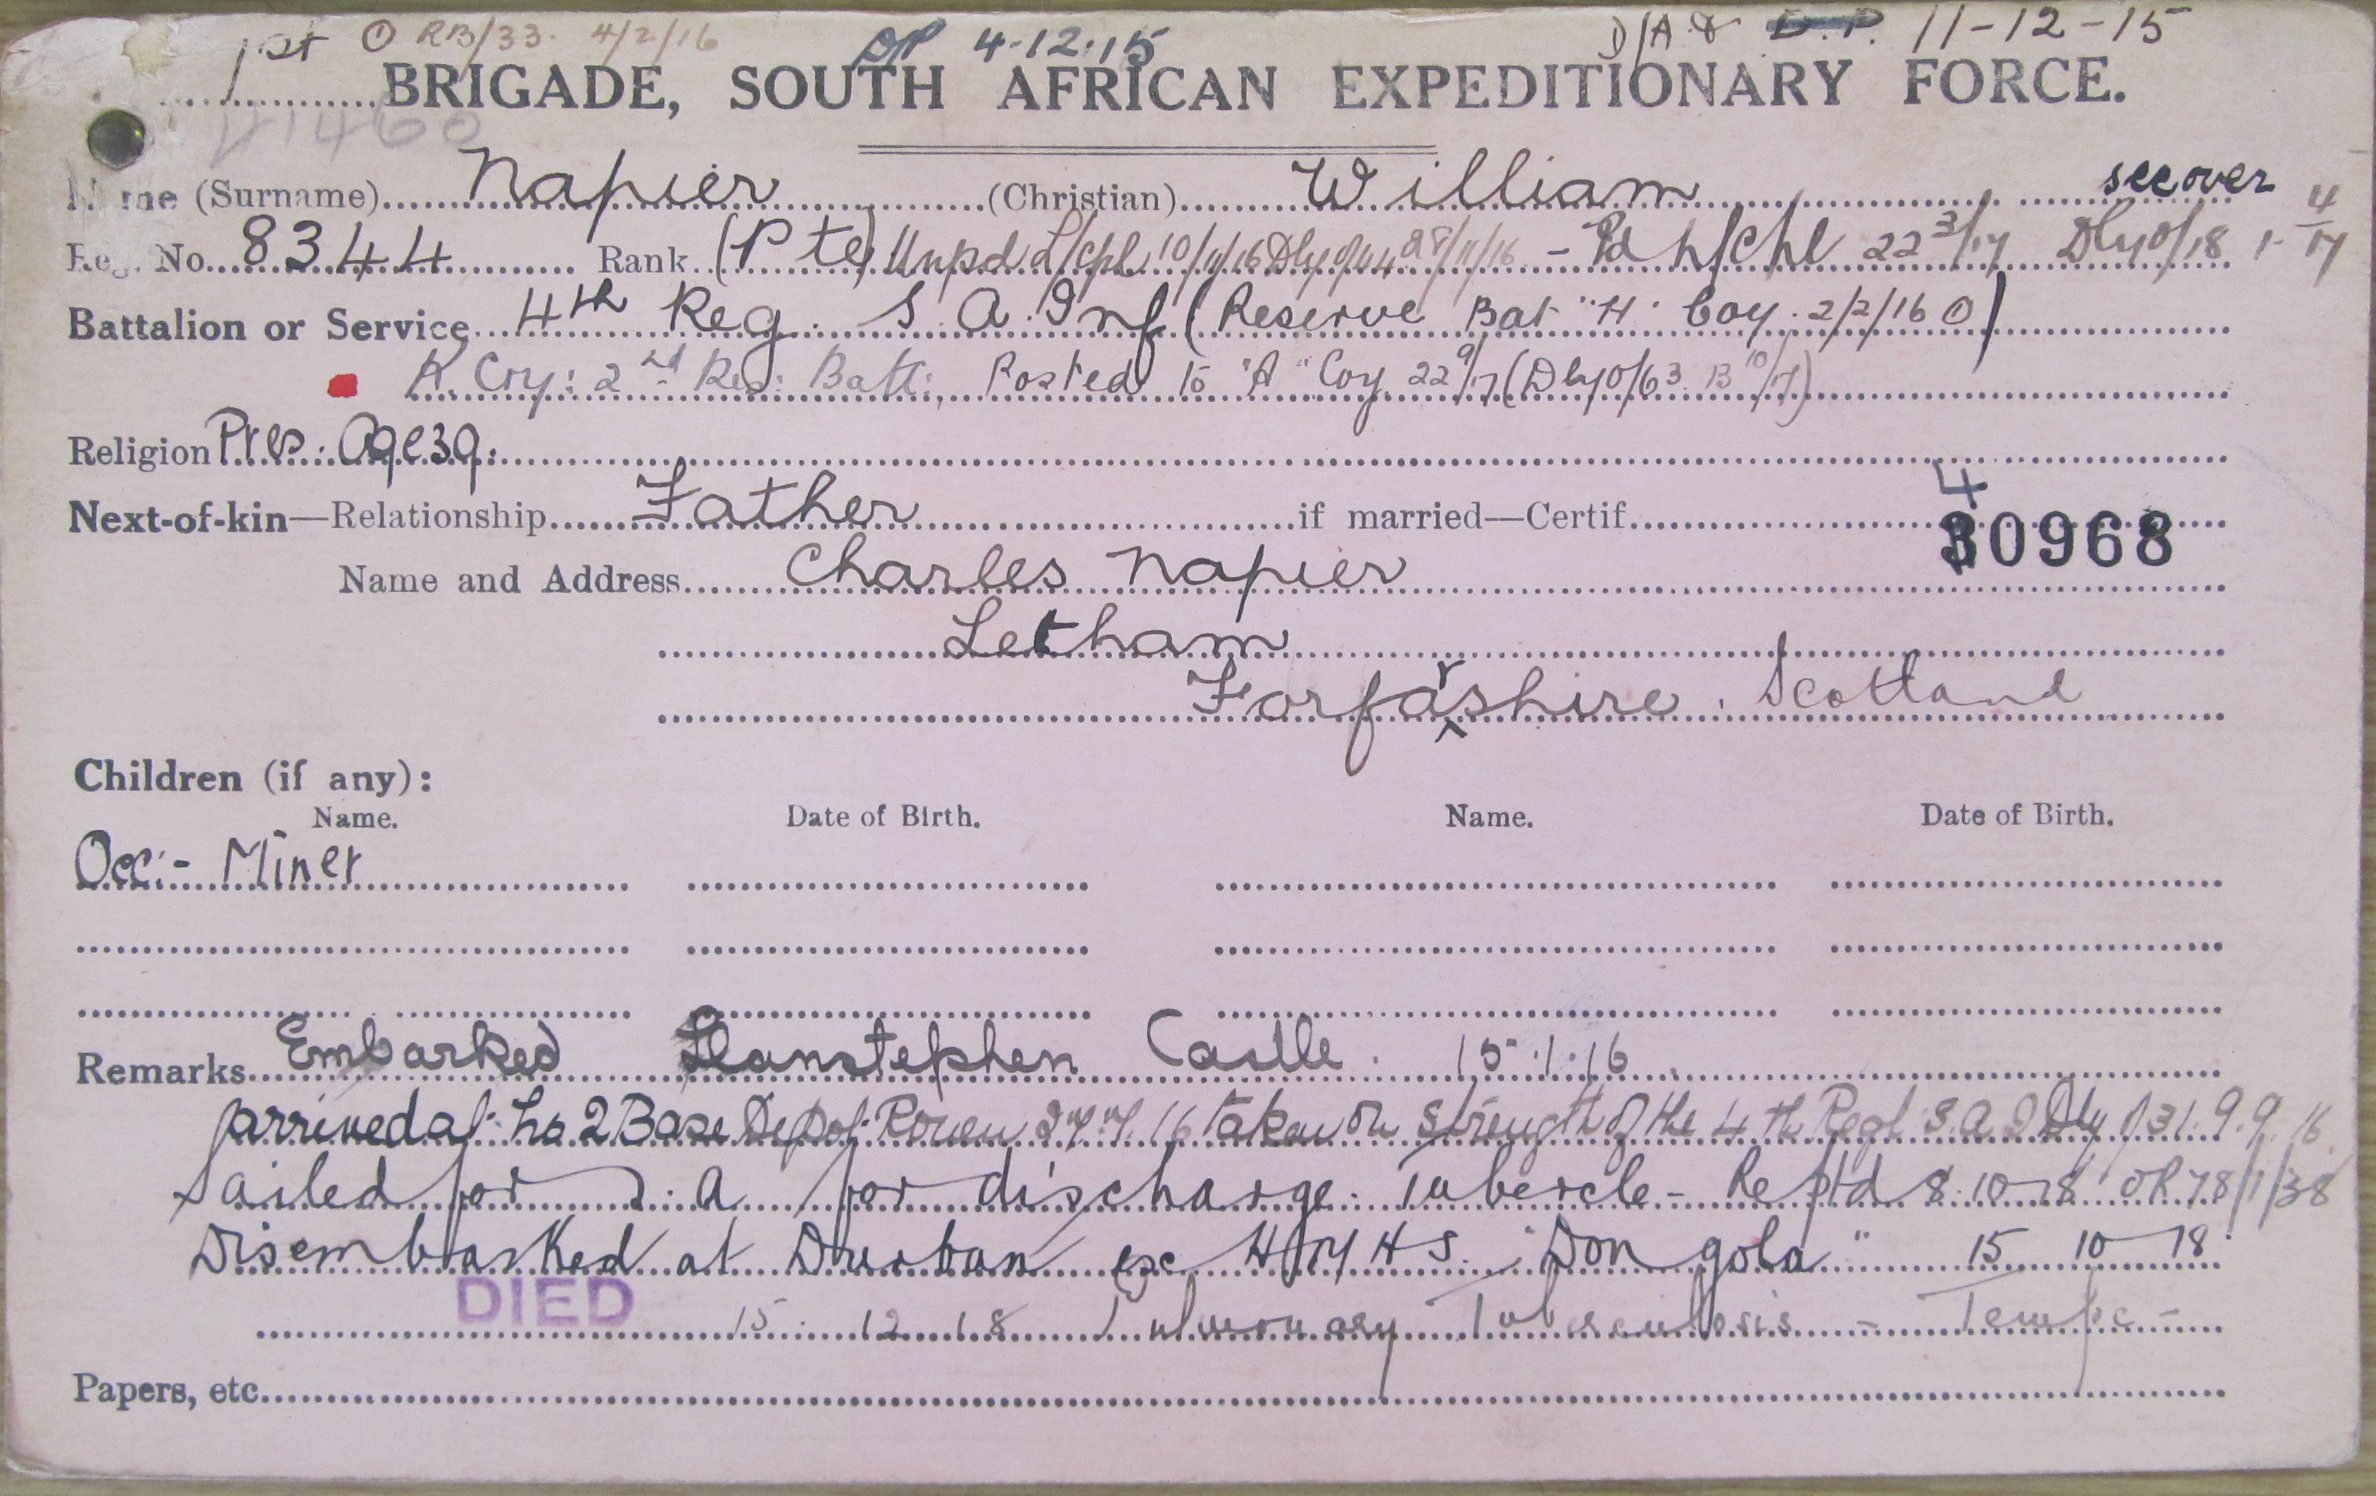 1st ① RB/33. 4/2/16 DP 4-12-15 D/A & D.P. 11-12-15
BRIGADE, SOUTH AFRICAN EXPEDITIONARY FORCE.
Name (Surname) Napier (Christian) William see over
Reg. No. 8344 Rank (Pte) Unpd L/Cpl 10/11/16 Dly 28/11/16 - Pd L/Cpl 22 3/17 Dly O/18 1- 4/17
Battalion or Service 4th Reg. S.A. Inf (Reserve Bat "H" Coy. 2/2/16 ①)
A. Coy: 2nd Res: Batt: Posted to "A" Coy 22 9/17 (Dly O/63 13 10/17)
Religion Pres. Age 39.
Next-of-kin—Relationship Father if married—Certif.
4
30968
Name and Address Charles Napier
Letham
Forfarshire. Scotland
Children (if any):
Name. Date of Birth. Name. Date of Birth.
Occ:- Miner
Remarks Embarked Llanstephen Castle. 15.1.16
Arrived at No 2 Base Depot Rouen 16 taken on strength of the 4th Regt S.A.I Dly O/31. 9.9.16
Sailed for S.A for discharge. Tubercle - Reptd 8.10.18 OR 78/1/38
Disembarked at Durban ex H M H S. "Don gola" 15 10 18
DIED 15. 12 18 Pulmonary Tuberculosis - Tempe -
Papers, etc.